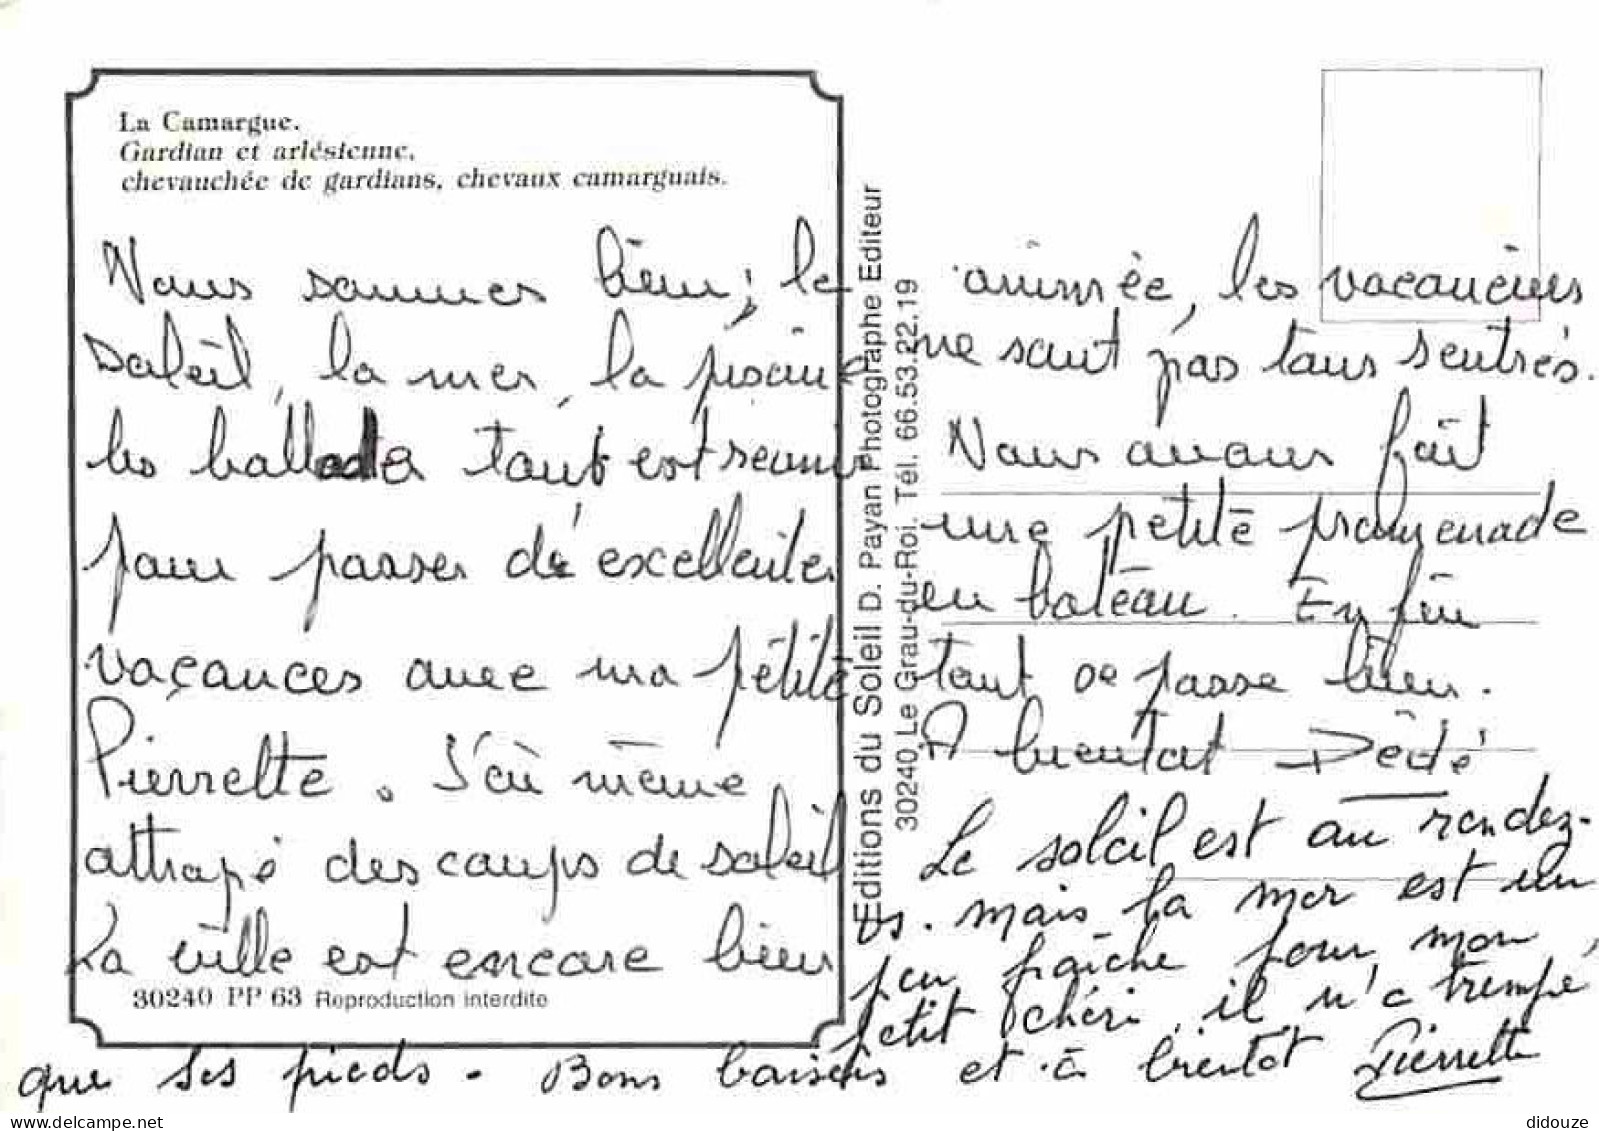 La Camargue.
Gardian et arlésienne,
chevauchée de gardians, chevaux camarguais.
Nous sommes bien ; le
soleil, la mer, la piscine
les ballades tout est réuni
pour passer de excellentes
vacances avec ma petite
Pierrette. J'ai même
attrapé des coups de soleil
La ville est encore bien
30240 PP 63 Reproduction interdite
Editions du Soleil D. Payan Photographe Editeur
30240 Le Grau-du-Roi. Tél. 66.53.22.19
animée, les vacanciers
ne sont pas tous rentrés.
Nous avons fait
une petite promenade
en bateau. Enfin
tout se passe bien.
A bientot Dédé
Le soleil est au rendez-
vs. mais la mer est un
peu fraîche pour mon
petit chéri, il n'a trempé
que ses pieds. Bons baisers et à bientot Pierrette
didouze